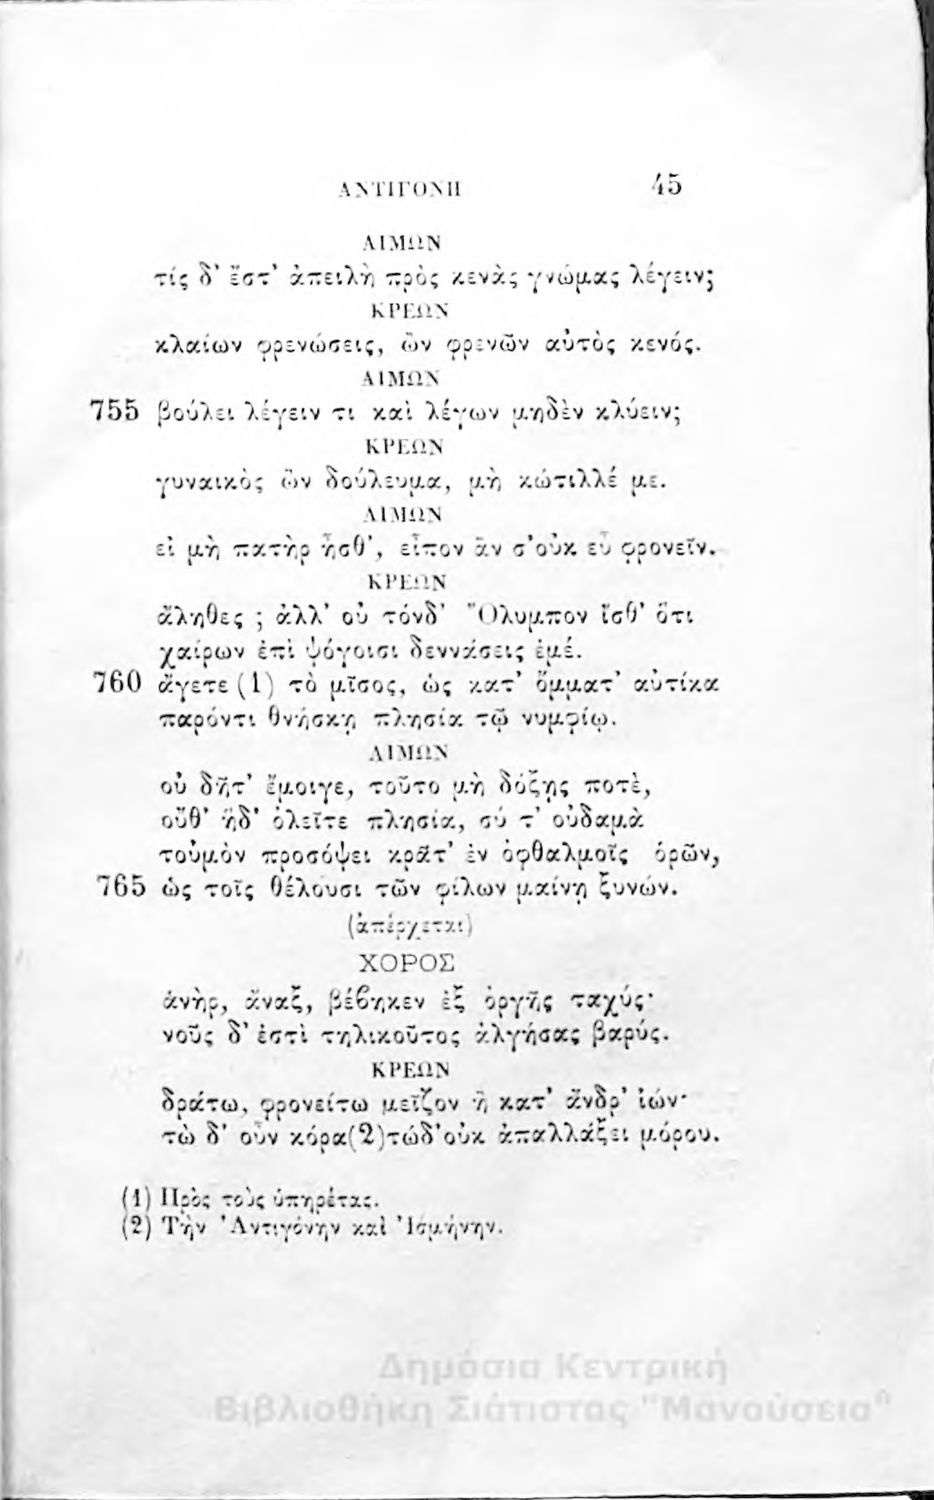 ΑΝΤΙΓΟΝΗ 45
ΑΙΜΩΝ
τίς δ' ἔστ' ἀπειλὴ πρὸς κενὰς γνώμας λέγειν;
ΚΡΕΩΝ
κλαίων φρενώσεις, ὢν φρενῶν αὐτὸς κενός.
ΑΙΜΩΝ
755 βούλει λέγειν τι καὶ λέγων μηδὲν κλύειν;
ΚΡΕΩΝ
γυναικὸς ὢν δούλευμα, μὴ κώτιλλέ με.
ΑΙΜΩΝ
εἰ μὴ πατὴρ ἦσθ', εἶπον ἄν σ'οὐκ εὖ φρονεῖν.
ΚΡΕΩΝ
ἄληθες ; ἀλλ' οὐ τόνδ' Ὄλυμπον ἴσθ' ὅτι
χαίρων ἐπὶ ψόγοισι δεννάσεις ἐμέ.
760 ἄγετε (1) τὸ μῖσος, ὡς κατ' ὄμματ' αὐτίκα
παρόντι θνήσκῃ πλησία τῷ νυμφίῳ.
ΑΙΜΩΝ
οὐ δῆτ' ἔμοιγε, τοῦτο μὴ δόξῃς ποτὲ,
οὔθ' ἥδ' ὀλεῖτε πλησία, σύ τ' οὐδαμὰ
τοὐμὸν προσόψει κρᾶτ' ἐν ὀφθαλμοῖς ὁρῶν,
765 ὡς τοῖς θέλουσι τῶν φίλων μαίνῃ ξυνών.
(ἀπέρχεται)
ΧΟΡΟΣ
ἁνὴρ, ἄναξ, βέβηκεν ἐξ ὀργῆς ταχύς·
νοῦς δ' ἐστὶ τηλικοῦτος ἀλγήσας βαρύς.
ΚΡΕΩΝ
δράτω, φρονείτω μεῖζον ἢ κατ' ἄνδρ' ἰών·
τὼ δ' οὖν κόρα(2)τώδ'οὐκ ἀπαλλάξει μόρου.
(1) Πρὸς τοὺς ὑπηρέτας.
(2) Τὴν Ἀντιγόνην καὶ Ἰσμήνην.
Δημόσια Κεντρική
Βιβλιοθήκη Σιάτιστας "Μανούσεια"